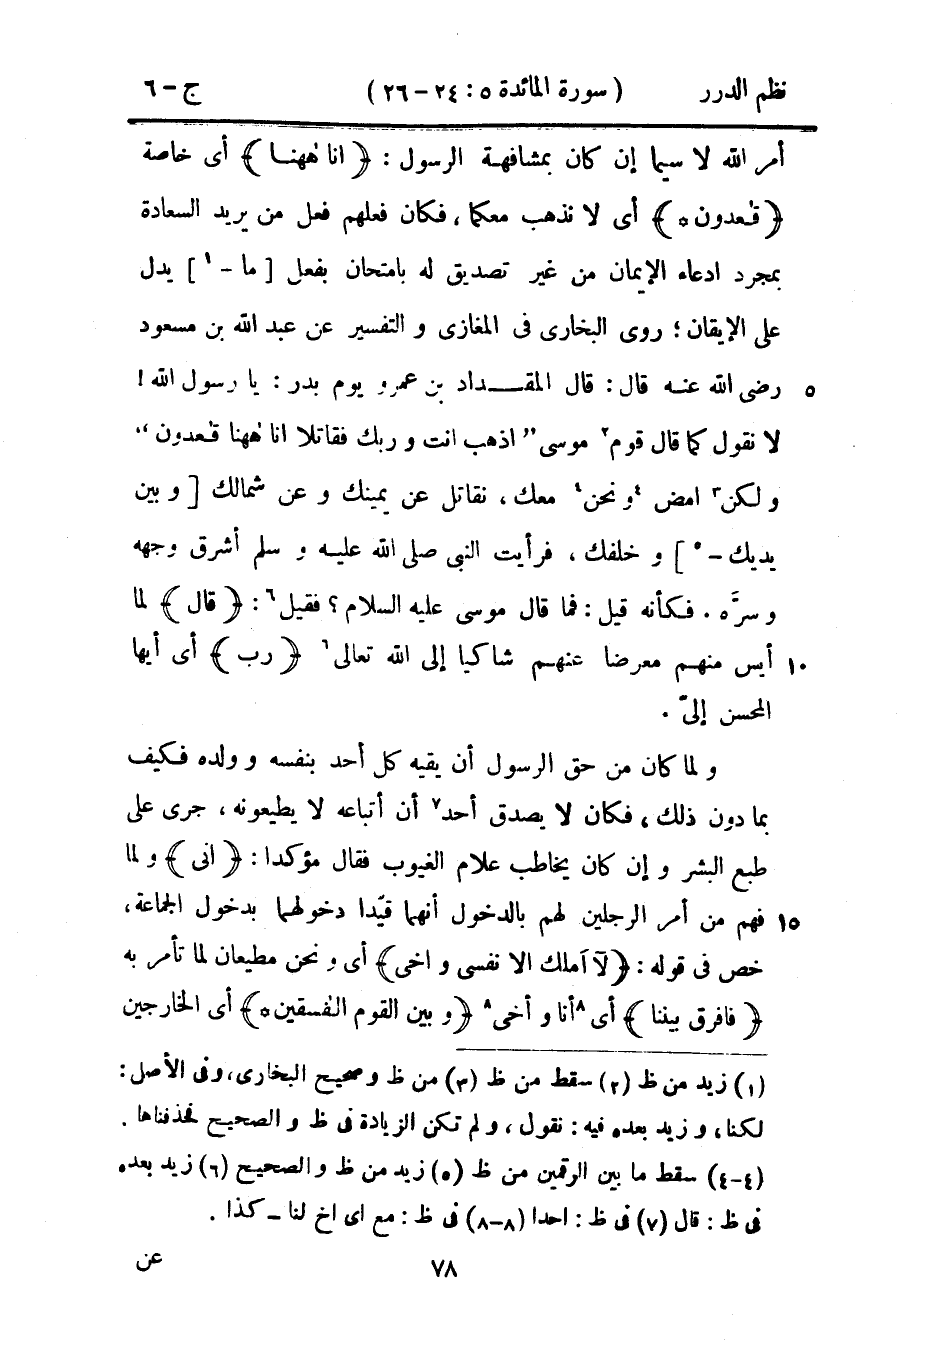 نظم الدرر ( سورة المائدة ٥ : ٢٤ – ٢٦ ) ج – ٦
أمر الله لا سيما إن كان بمشافهة الرسول : ﴿ انا هٰهنا ﴾ أى خاصة
﴿ قٰعدون * ﴾ أى لا نذهب معكما ، فكان فعلهم فعل من يريد السعادة
بمجرد ادعاء الإيمان من غير تصديق له بامتحان بفعل [ ما – ١ ] يدل
على الإيقان ؛ روى البخارى فى المغازى و التفسير عن عبد الله بن مسعود
٥ رضى الله عنه قال : قال المقداد بن عمرو يوم بدر : يا رسول الله !
لا نقول كما قال قوم ٢ موسى " اذهب انت و ربك فقاتلا انا هٰهنا قٰعدون "
و لكن ٣ امض ٤ و نحن ٤ معك ، نقاتل عن يمينك و عن شمالك [ و بين
يديك – ٥ ] و خلفك ، فرأيت النبى صلى الله عليه و سلم أشرق وجهه
و سرَّه . فكأنه قيل : فما قال موسى عليه السلام ؟ فقيل ٦ : ﴿ قال ﴾ لما
١٠ أيس منهم معرضا عنهم شاكيا إلى الله تعالى ٦ ﴿ رب ﴾ أى أيها
المحسن إلىّ .
و لما كان من حق الرسول أن يقيه كل أحد بنفسه و ولده فكيف
بما دون ذلك ، فكان لا يصدق أحد ٧ أن أتباعه لا يطيعونه ، جرى على
طبع البشر و إن كان يخاطب علام الغيوب فقال مؤكدا : ﴿ انى ﴾ و لما
١٥ فهم من أمر الرجلين لهم بالدخول أنهما قيّدا دخولهما بدخول الجماعة ،
خص فى قوله : ﴿ لآ املك الا نفسى و اخى ﴾ أى و نحن مطيعان لما تأمر به
﴿ فافرق بيننا ﴾ أى ٨ أنا و أخى ٨ ﴿ و بين القوم الفٰسقين * ﴾ أى الخارجين
(١) زيد من ظ (٢) سقط من ظ (٣) من ظ و صحيح البخارى ، وفى الأصل :
لكنا ، و زيد بعده فيه : نقول ، و لم تكن الزيادة فى ظ و الصحيح فحذفناها .
(٤-٤) سقط ما بين الرقمين من ظ (٥) زيد من ظ و الصحيح (٦) زيد بعده
فى ظ : قال (٧) فى ظ : احدا (٨-٨) فى ظ : مع اى اخ لنا – كذا .
٧٨ عن